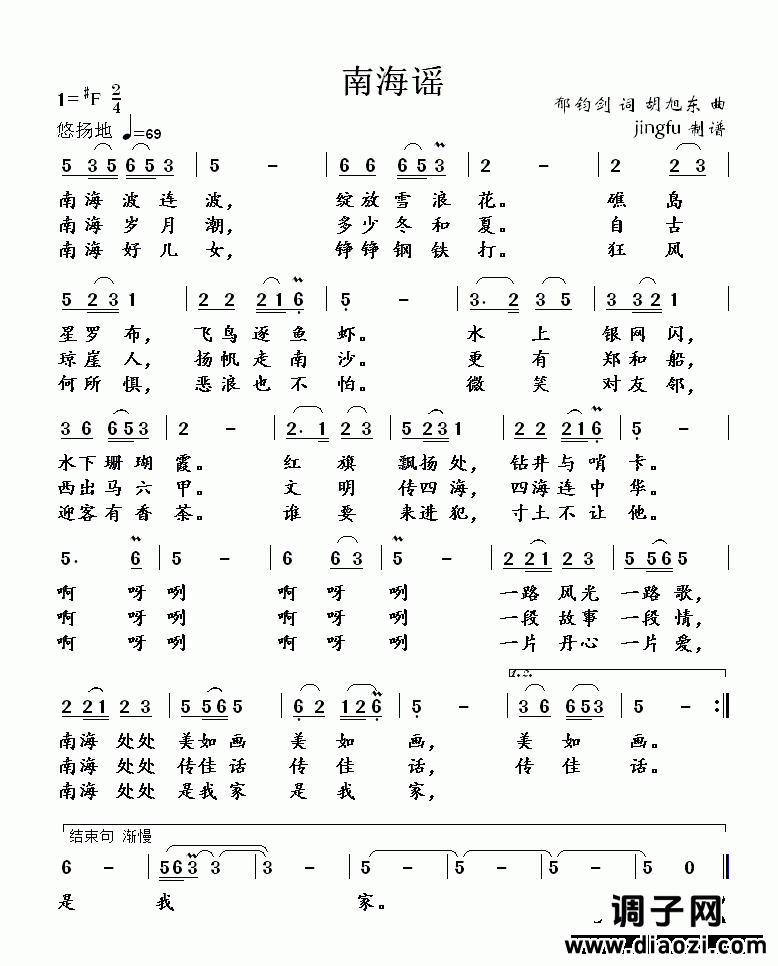 南海谣
1=#F 2/4
郁钧剑 词 胡旭东 曲
悠扬地 ♩=69
jingfu 制谱
5 35 653 | 5 - | 6 6 653 | 2 - | 2 23 |
南海波连波, 绽放雪浪花。 礁岛
南海岁月潮, 多少冬和夏。 自古
南海好儿女, 铮铮钢铁打。 狂风
5 231 | 22 216 | 5 - | 3. 2 35 | 3 321 |
星罗布, 飞鸟逐鱼虾。 水上 银网闪,
琼崖人, 扬帆走南沙。 更有 郑和船,
何所惧, 恶浪也不怕。 微笑 对友邻,
36 653 | 2 - | 2.1 23 | 5 231 | 22 216 | 5 - |
水下珊瑚霞。 红旗 飘扬处, 钻井与哨卡。
西出马六甲。 文明 传四海, 四海连中华。
迎客有香茶。 谁要 来进犯, 寸土不让他。
5. 6 | 5 - | 6 63 | 5 - | 2 21 23 | 5 565 |
啊呀咧 啊呀咧 一路风光一路歌,
啊呀咧 啊呀咧 一段故事一段情,
啊呀咧 啊呀咧 一片丹心一片爱,
1.2.
2 21 23 | 5 565 | 62 126 | 5 - | 36 653 | 5 - :||
南海 处处 美如画 美如画, 美如画。
南海 处处 传佳话 传佳话, 传佳话。
南海 处处 是我家 是我家,
结束句 渐慢
6 - | 563 3 | 3 - | 5 - | 5 - | 5 - | 5 0 ||
是 我 家。
调子网
www.diaozi.com